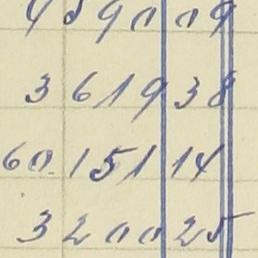 459009
361938
60.15114
320025